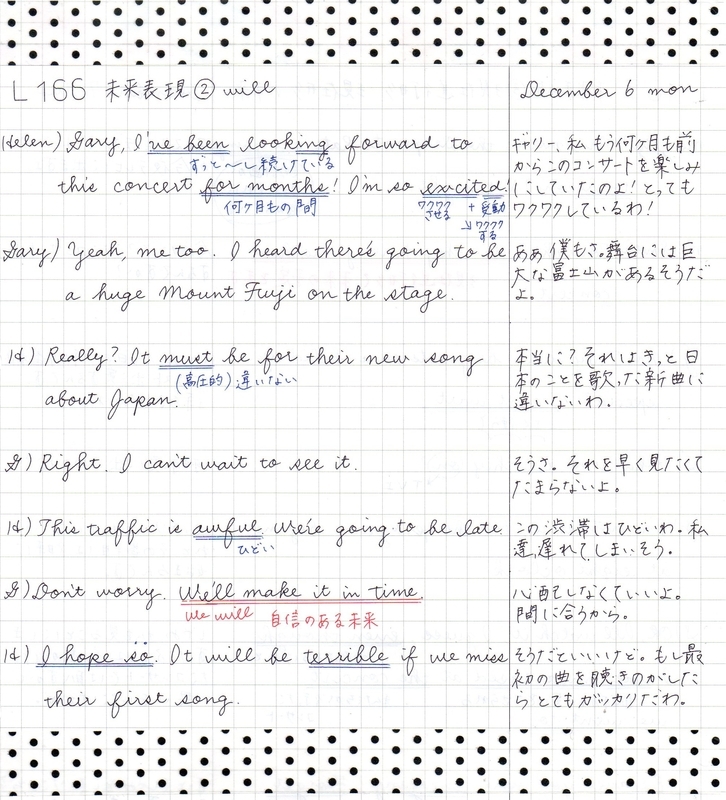 L166 未来表現② will
December 6 mon
Helen) Gary, I've been looking forward to
ずっと〜し続けている
this concert for months! I'm so excited!
何ケ月もの間
ワクワクさせる + 受動
↓ワクワクする
ギャリー、私 もう何ヶ月も前
からこのコンサートを楽しみ
にしていたのよ！とっても
ワクワクしているわ！
Gary) Yeah, me too. I heard there's going to be
a huge Mount Fuji on the stage.
ああ 僕もさ。舞台には巨
大な富士山があるそうだ
よ。
H) Really? It must be for their new song
(高圧的) 違いない
about Japan.
本当に？それはきっと日
本のことを歌った新曲に
違いないわ。
G) Right. I can't wait to see it.
そうさ。それを早く見たくて
たまらないよ。
H) This traffic is awful. We're going to be late.
ひどい
この渋滞はひどいわ。私
達、遅れてしまいそう。
G) Don't worry. We'll make it in time.
we will 自信のある未来
心配しなくていいよ。
間に合うから。
H) I hope so. It will be terrible if we miss
their first song.
そうだといいけど。もし最
初の曲を聴きのがした
ら とてもガッカリだわ。